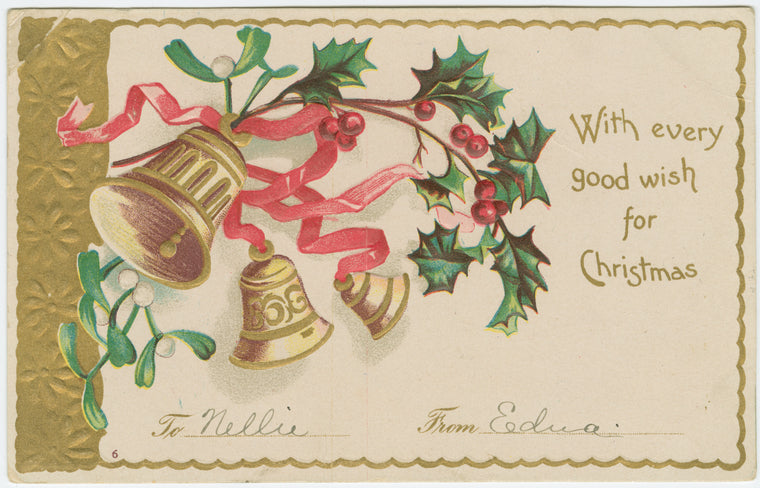 With every
good wish
for
Christmas
To Nellie From Edna.
6